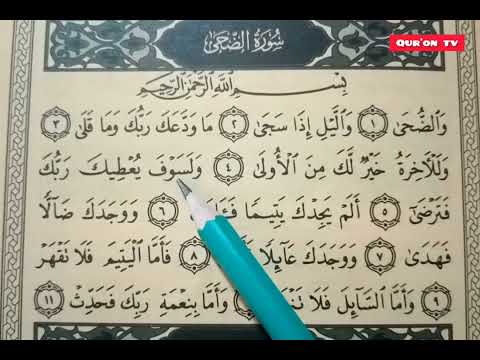 QUR'ON TV
سُورَةُ الضُّحَىٰ
بِسْمِ ٱللَّهِ ٱلرَّحْمَٰنِ ٱلرَّحِيمِ
وَٱلضُّحَىٰ ١ وَٱلَّيْلِ إِذَا سَجَىٰ ٢ مَا وَدَّعَكَ رَبُّكَ وَمَا قَلَىٰ ٣
وَلَلْأَخِرَةُ خَيْرٌ لَّكَ مِنَ ٱلْأُولَىٰ ٤ وَلَسَوْفَ يُعْطِيكَ رَبُّكَ
فَتَرْضَىٰٓ ٥ أَلَمْ يَجِدْكَ يَتِيمًا ٦ وَوَجَدَكَ ضَآلًّا
فَهَدَىٰ ٧ وَوَجَدَكَ عَآئِلًا ٨ فَأَمَّا ٱلْيَتِيمَ فَلَا تَقْهَرْ
٩ وَأَمَّا ٱلسَّآئِلَ فَلَا وَأَمَّا بِنِعْمَةِ رَبِّكَ فَحَدِّثْ ١١